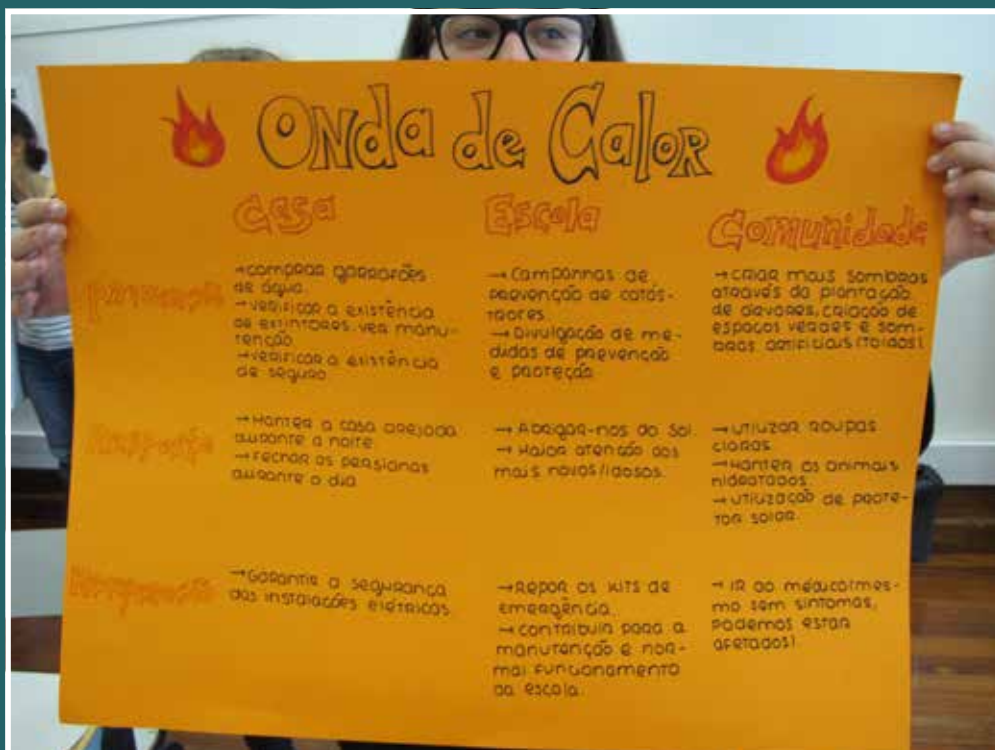 Onda de Calor
Casa
Escola
Comunidade
Prevenção
→ Comprar garrafões
de água.
→ Verificar a existência
de extintores. Ver manu-
tenção
→ Verificar a existência
de seguro.
→ Campanhas de
prevenção de catás-
trofes.
→ Divulgação de me-
didas de prevenção
e proteção.
→ Criar mais sombras
através da plantação
de árvores, criação de
espaços verdes e som-
bras artificiais (toldos).
Resposta
→ Manter a casa arejada
durante a noite
→ Fechar as persianas
durante o dia
→ Abrigar-nos do Sol.
→ Maior atenção aos
mais novos/idosos.
→ Utilizar roupas
claras.
→ Manter os animais
hidratados.
→ Utilização de prote-
tor solar.
Recuperação
→ Garantir a segurança
das instalações elétricas
→ Repor os kits de
emergência.
→ Contribuir para a
manutenção e nor-
mal funcionamento
da escola.
→ Ir ao médico (mes-
mo sem sintomas,
podemos estar
afetados).